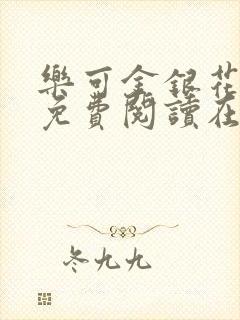 樂可金銀花
免費閱讀在
冬九九